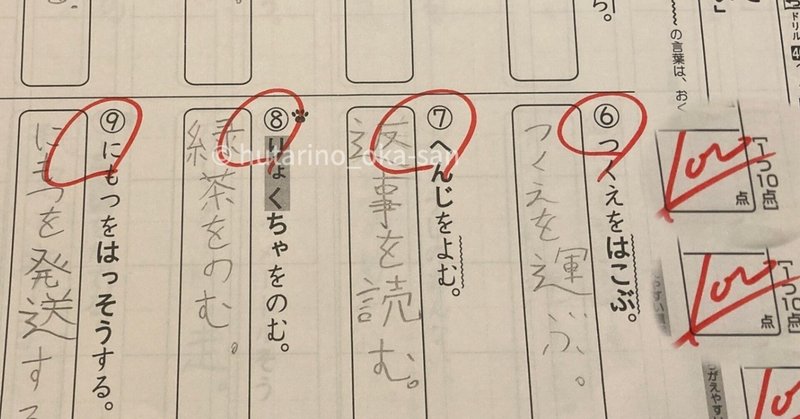 ドリル
の言葉は、おく
[1つ10点]
点
100
[1つ10点]
点
100
100
ら。
⑥つくえをはこぶ。
つくえを運ぶ。
⑦へんじをよむ。
返事を読む。
⑧りょくちゃをのむ。
緑茶をのむ。
⑨にもつをはっそうする。
にもつを発送する
@hutarino_oka-san